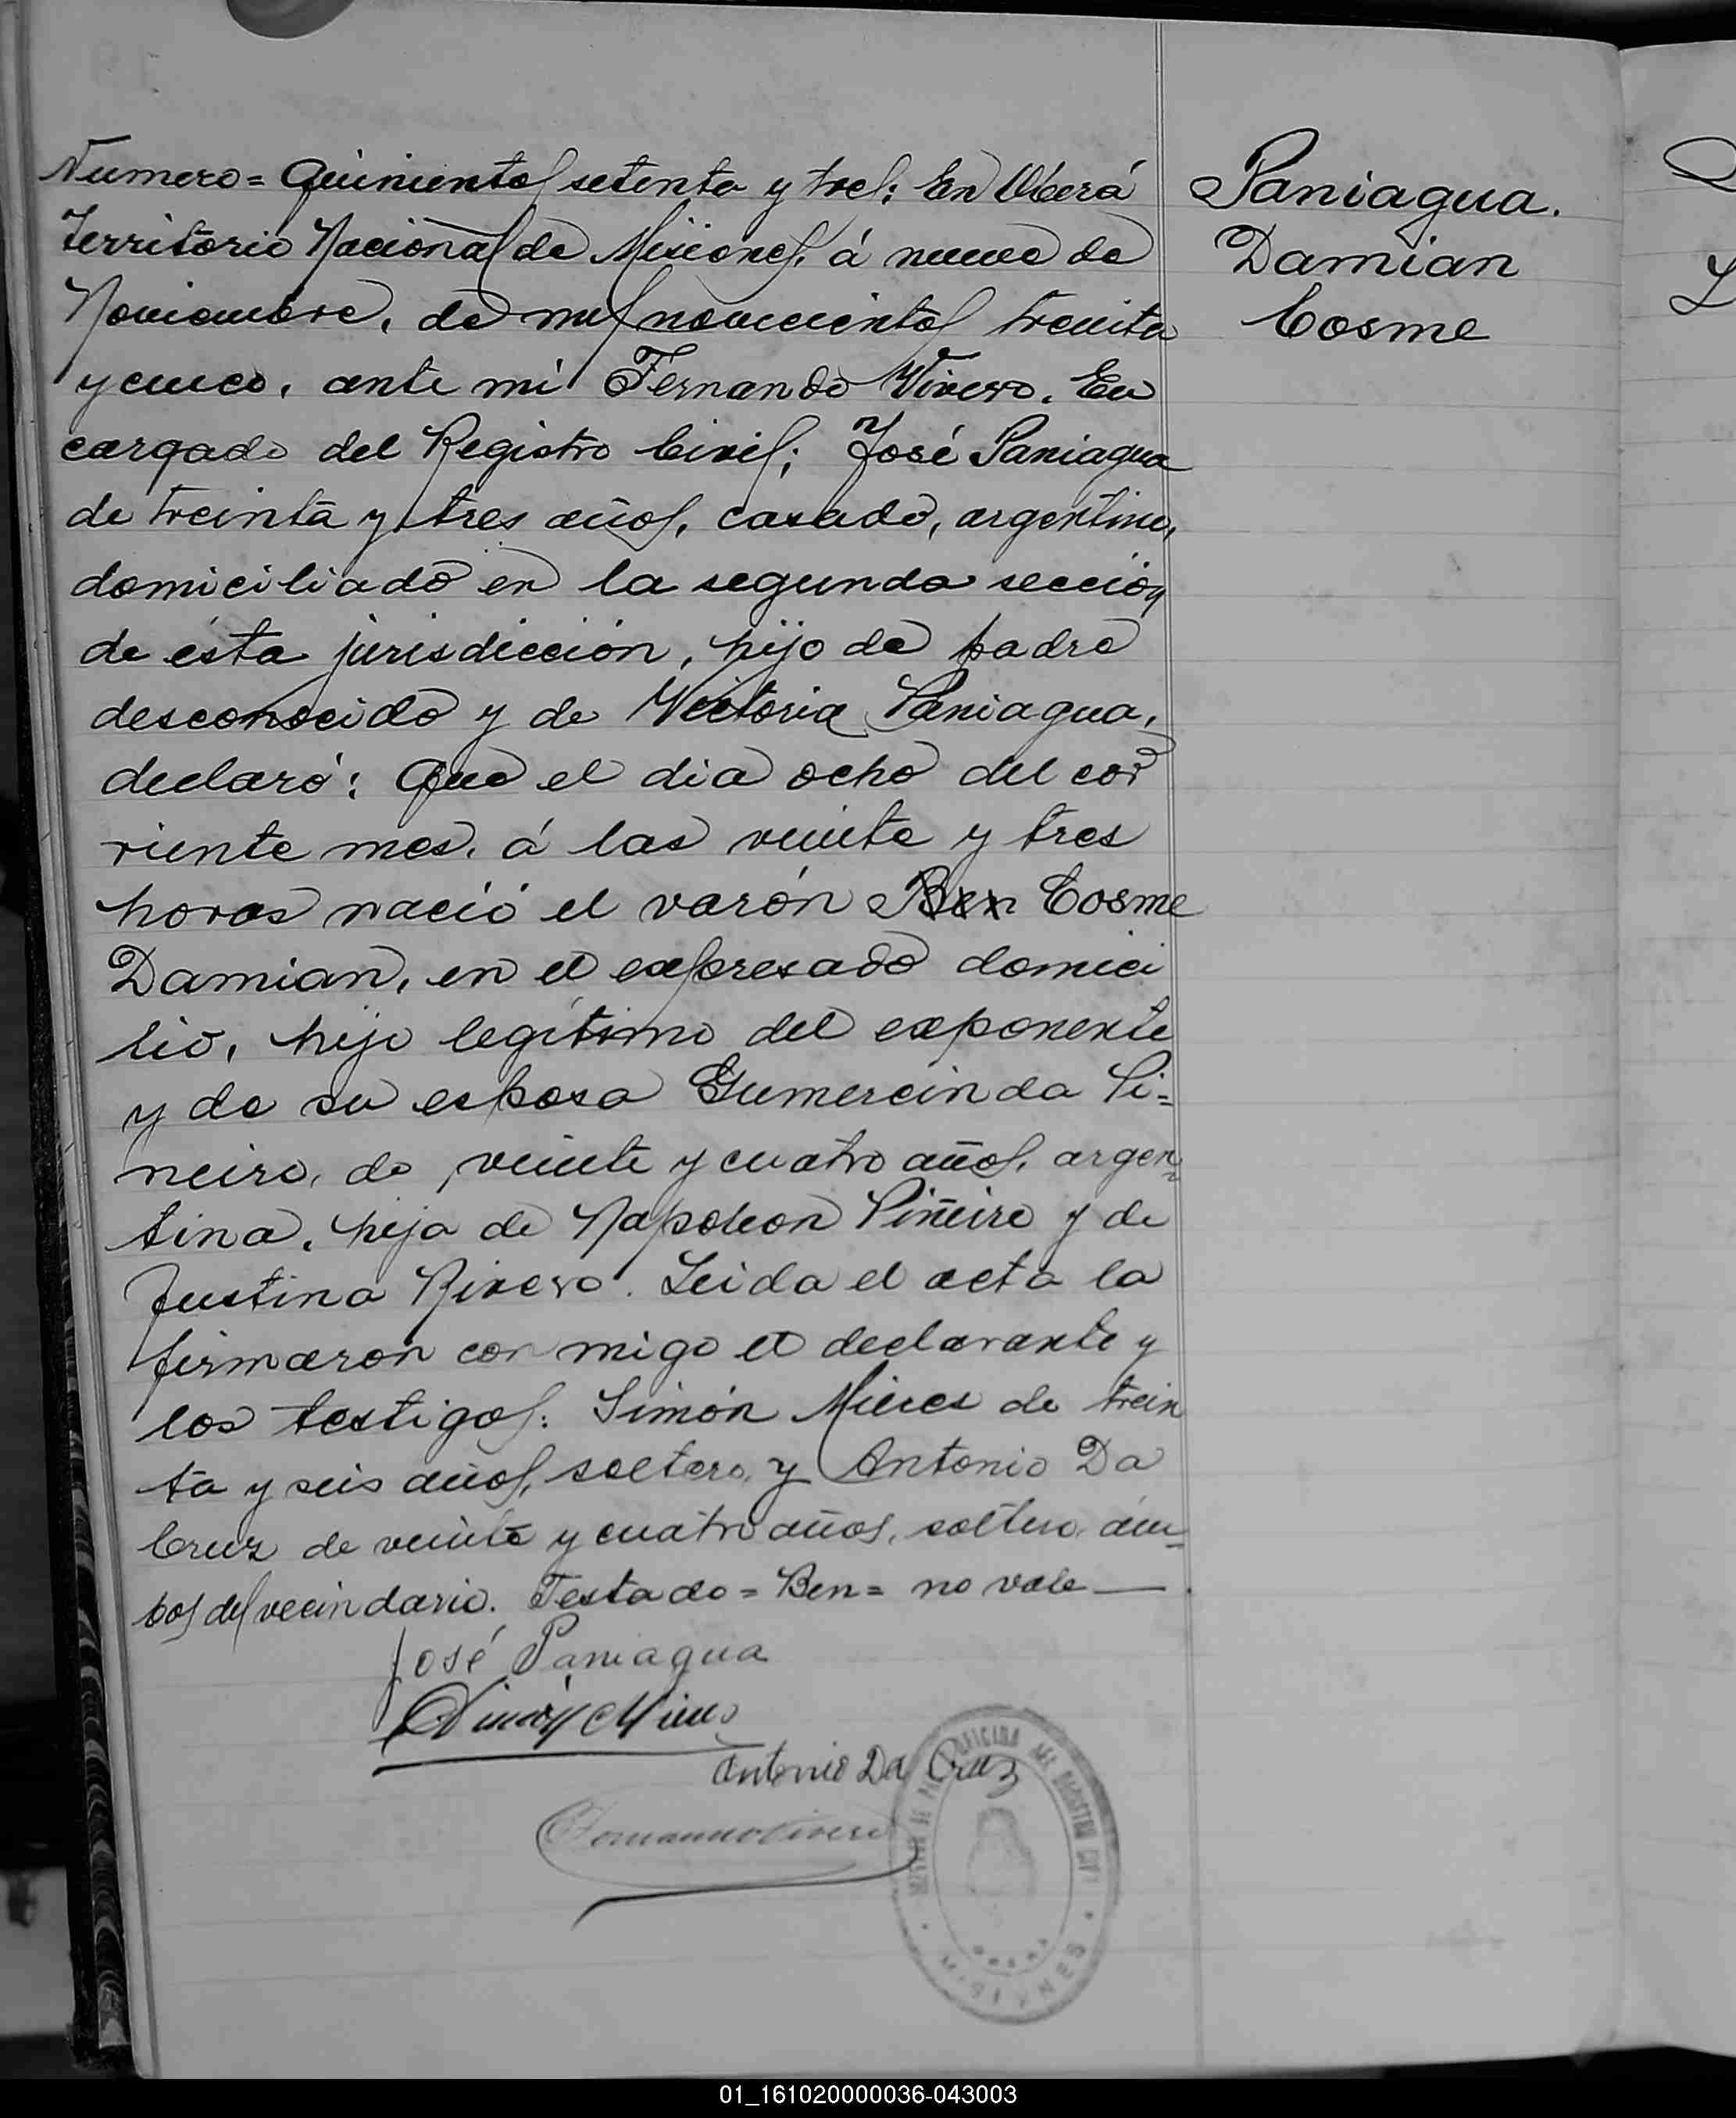 Numero = Quinientos setenta y tres: En Oberá
Territorio Nacional de Misiones, á nueve de
Noviembre, de mil novecientos treinta
y cinco, ante mi Fernando Vivero, En
cargado del Registro Civil; José Paniagua
de treinta y tres años, casado, argentino,
domiciliado en la segunda sección
de ésta jurisdicción, hijo de padre
desconocido y de Victoria Paniagua,
declaró: Que el dia ocho del cor
riente mes, á las veinte y tres
horas nació el varón Ben Cosme
Damian, en el expresado domici
lio, hijo legítimo del exponente
y de su esposa Gumercinda Pi=
neiro, de veinte y cuatro años, argen
tina, hija de Napoleon Piñeiro y de
Justina Rivero. Leida el acta la
firmaron con migo el declarante y
los testigos: Simón Mieres de trein
ta y seis años, soltero, y Antonio Da
Cruz de veinte y cuatro años, soltero, am=
bos del vecindario. Testado = Ben = no vale —
José Paniagua
Simón Mieres
Antonio Da Cruz
Fernando Vivero
OFICINA DEL REGISTRO CIVIL
MISIONES
Paniagua.
Damian
Cosme
01_161020000036-043003